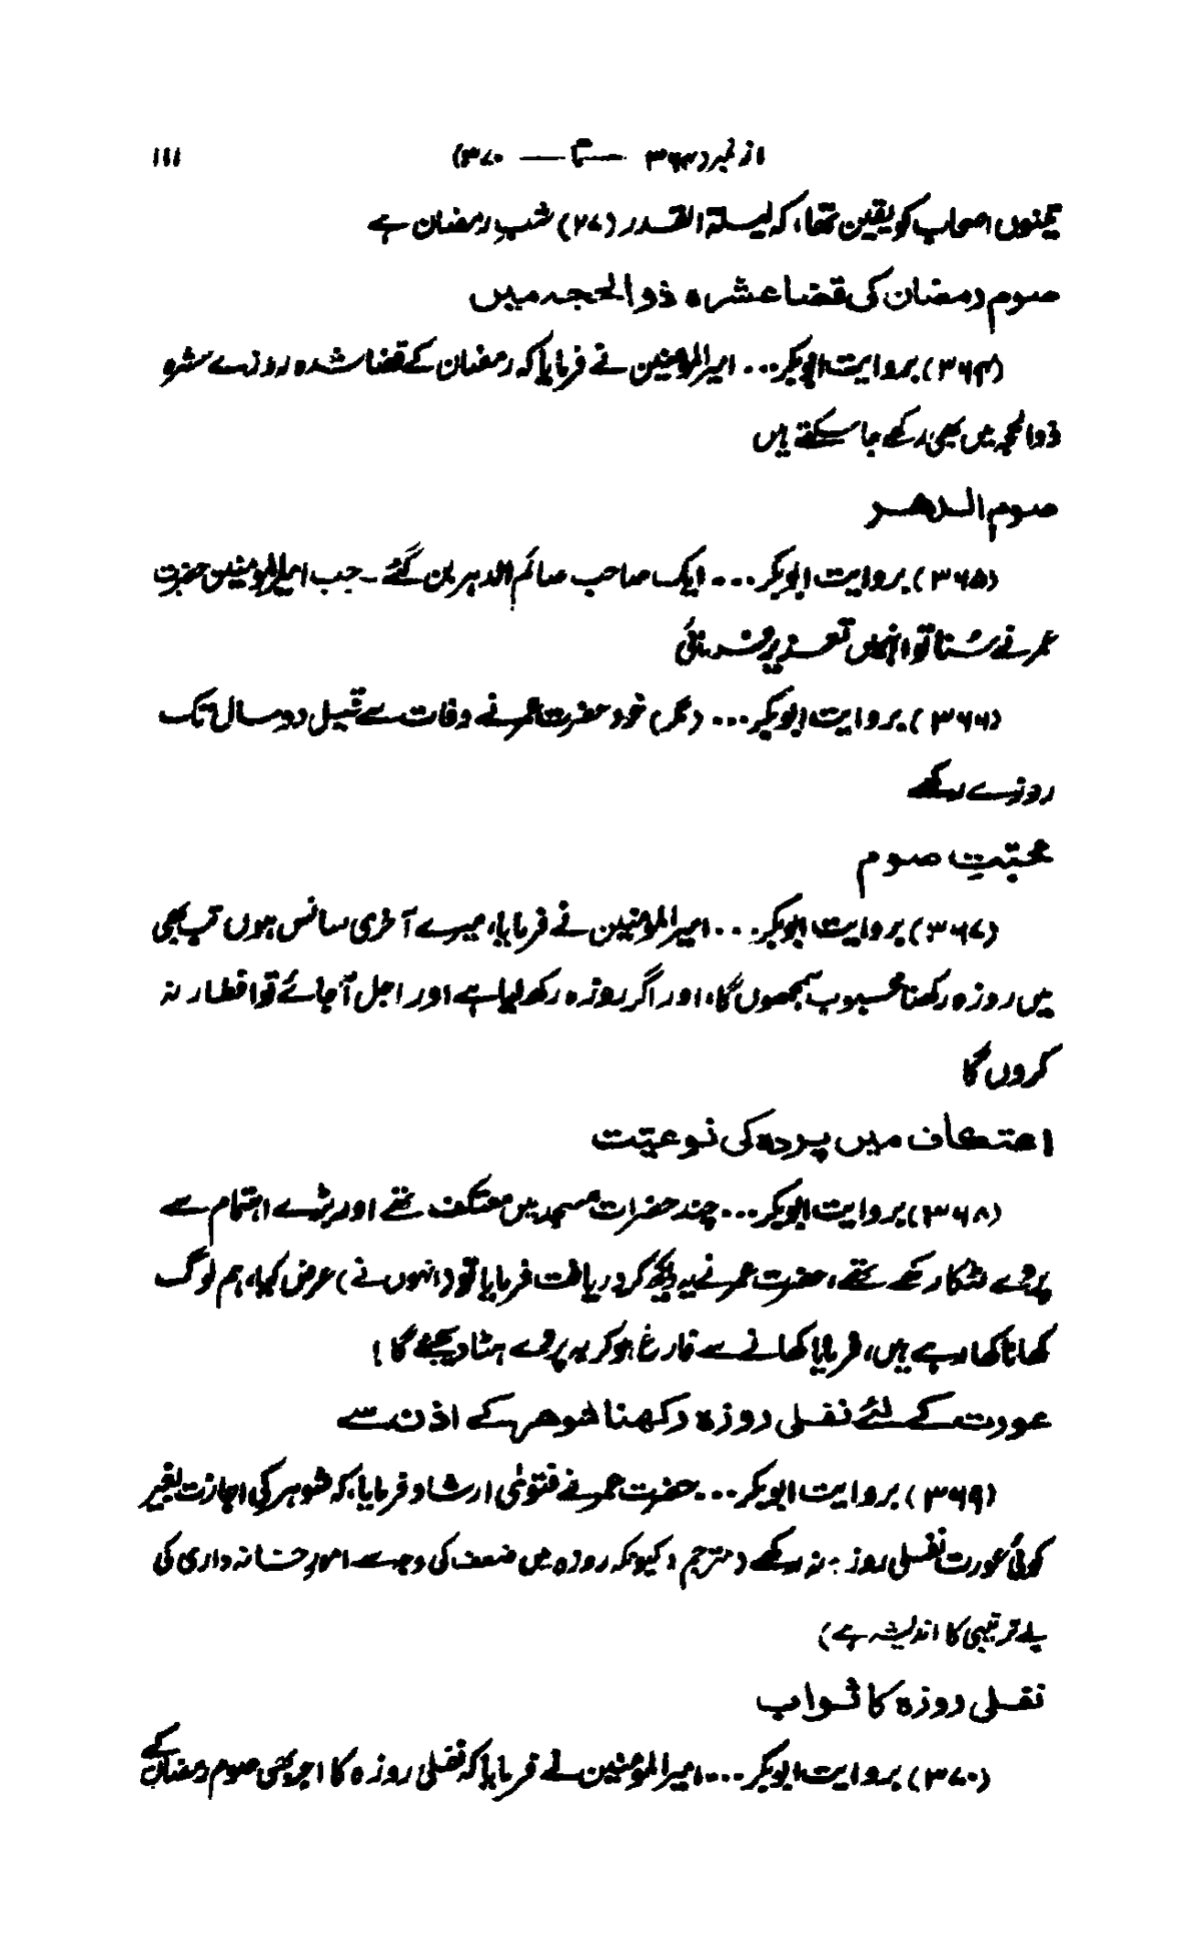 از نمبر (۳۶۴ — تا — ۳۷۰) ۱۱۱
تینوں اصحاب کو یقین تھا، کہ لیلۃ القدر (۲۷) شبِ رمضان ہے
صوم رمضان کی قضا عشرہ ذوالحجہ میں
(۳۶۴) بروایت ابوبکر... امیرالمؤمنین نے فرمایا کہ رمضان کے قضا شدہ روزے عشرہ
ذوالحجہ میں بھی رکھے جا سکتے ہیں
صوم الدھر
(۳۶۵) بروایت ابوبکر.... ایک صاحب صائم الدہر بن گئے۔ جب امیرالمؤمنین حضرت
عمر نے سُنا تو انہیں تعزیر فرمائی
(۳۶۶) بروایت ابوبکر... (مگر) خود حضرت عمر نے وفات سے قبل دو سال تک
روزے رکھے
محبّتِ صوم
(۳۶۷) بروایت ابوبکر... امیرالمؤمنین نے فرمایا، میرے آخری سانس ہوں تب بھی
میں روزہ رکھنا محبوب سمجھوں گا، اور اگر روزہ رکھ لیا ہے اور اجل آ جائے تو افطار نہ
کروں گا
اعتکاف میں پردہ کی نوعیّت
(۳۶۸) بروایت ابوبکر... چند حضرات مسجد میں معتکف تھے اور بڑے اہتمام سے
پردے لٹکا رکھے تھے، حضرت عمر نے یہ دیکھ کر دریافت فرمایا تو (انہوں نے) عرض کیا، ہم لوگ
کھانا کھا رہے ہیں، فرمایا کھانے سے فارغ ہو کر یہ پردے ہٹا دیجئے گا!
عورت کے لئے نفلی روزہ رکھنا شوھر کے اذن سے
(۳۶۹) بروایت ابوبکر... حضرت عمر نے فتویٰ ارشاد فرمایا، کہ شوہر کی اجازت بغیر
کوئی عورت نفلی روزہ نہ رکھے (مترجم: کیونکہ روزہ میں ضعف کی وجہ سے امور خانہ داری کی
بے ترتیبی کا اندیشہ ہے)
نفلی روزہ کا ثواب
(۳۷۰) بروایت ابوبکر... امیرالمؤمنین نے فرمایا کہ نفلی روزہ کا اجر بھی صوم رمضان کے